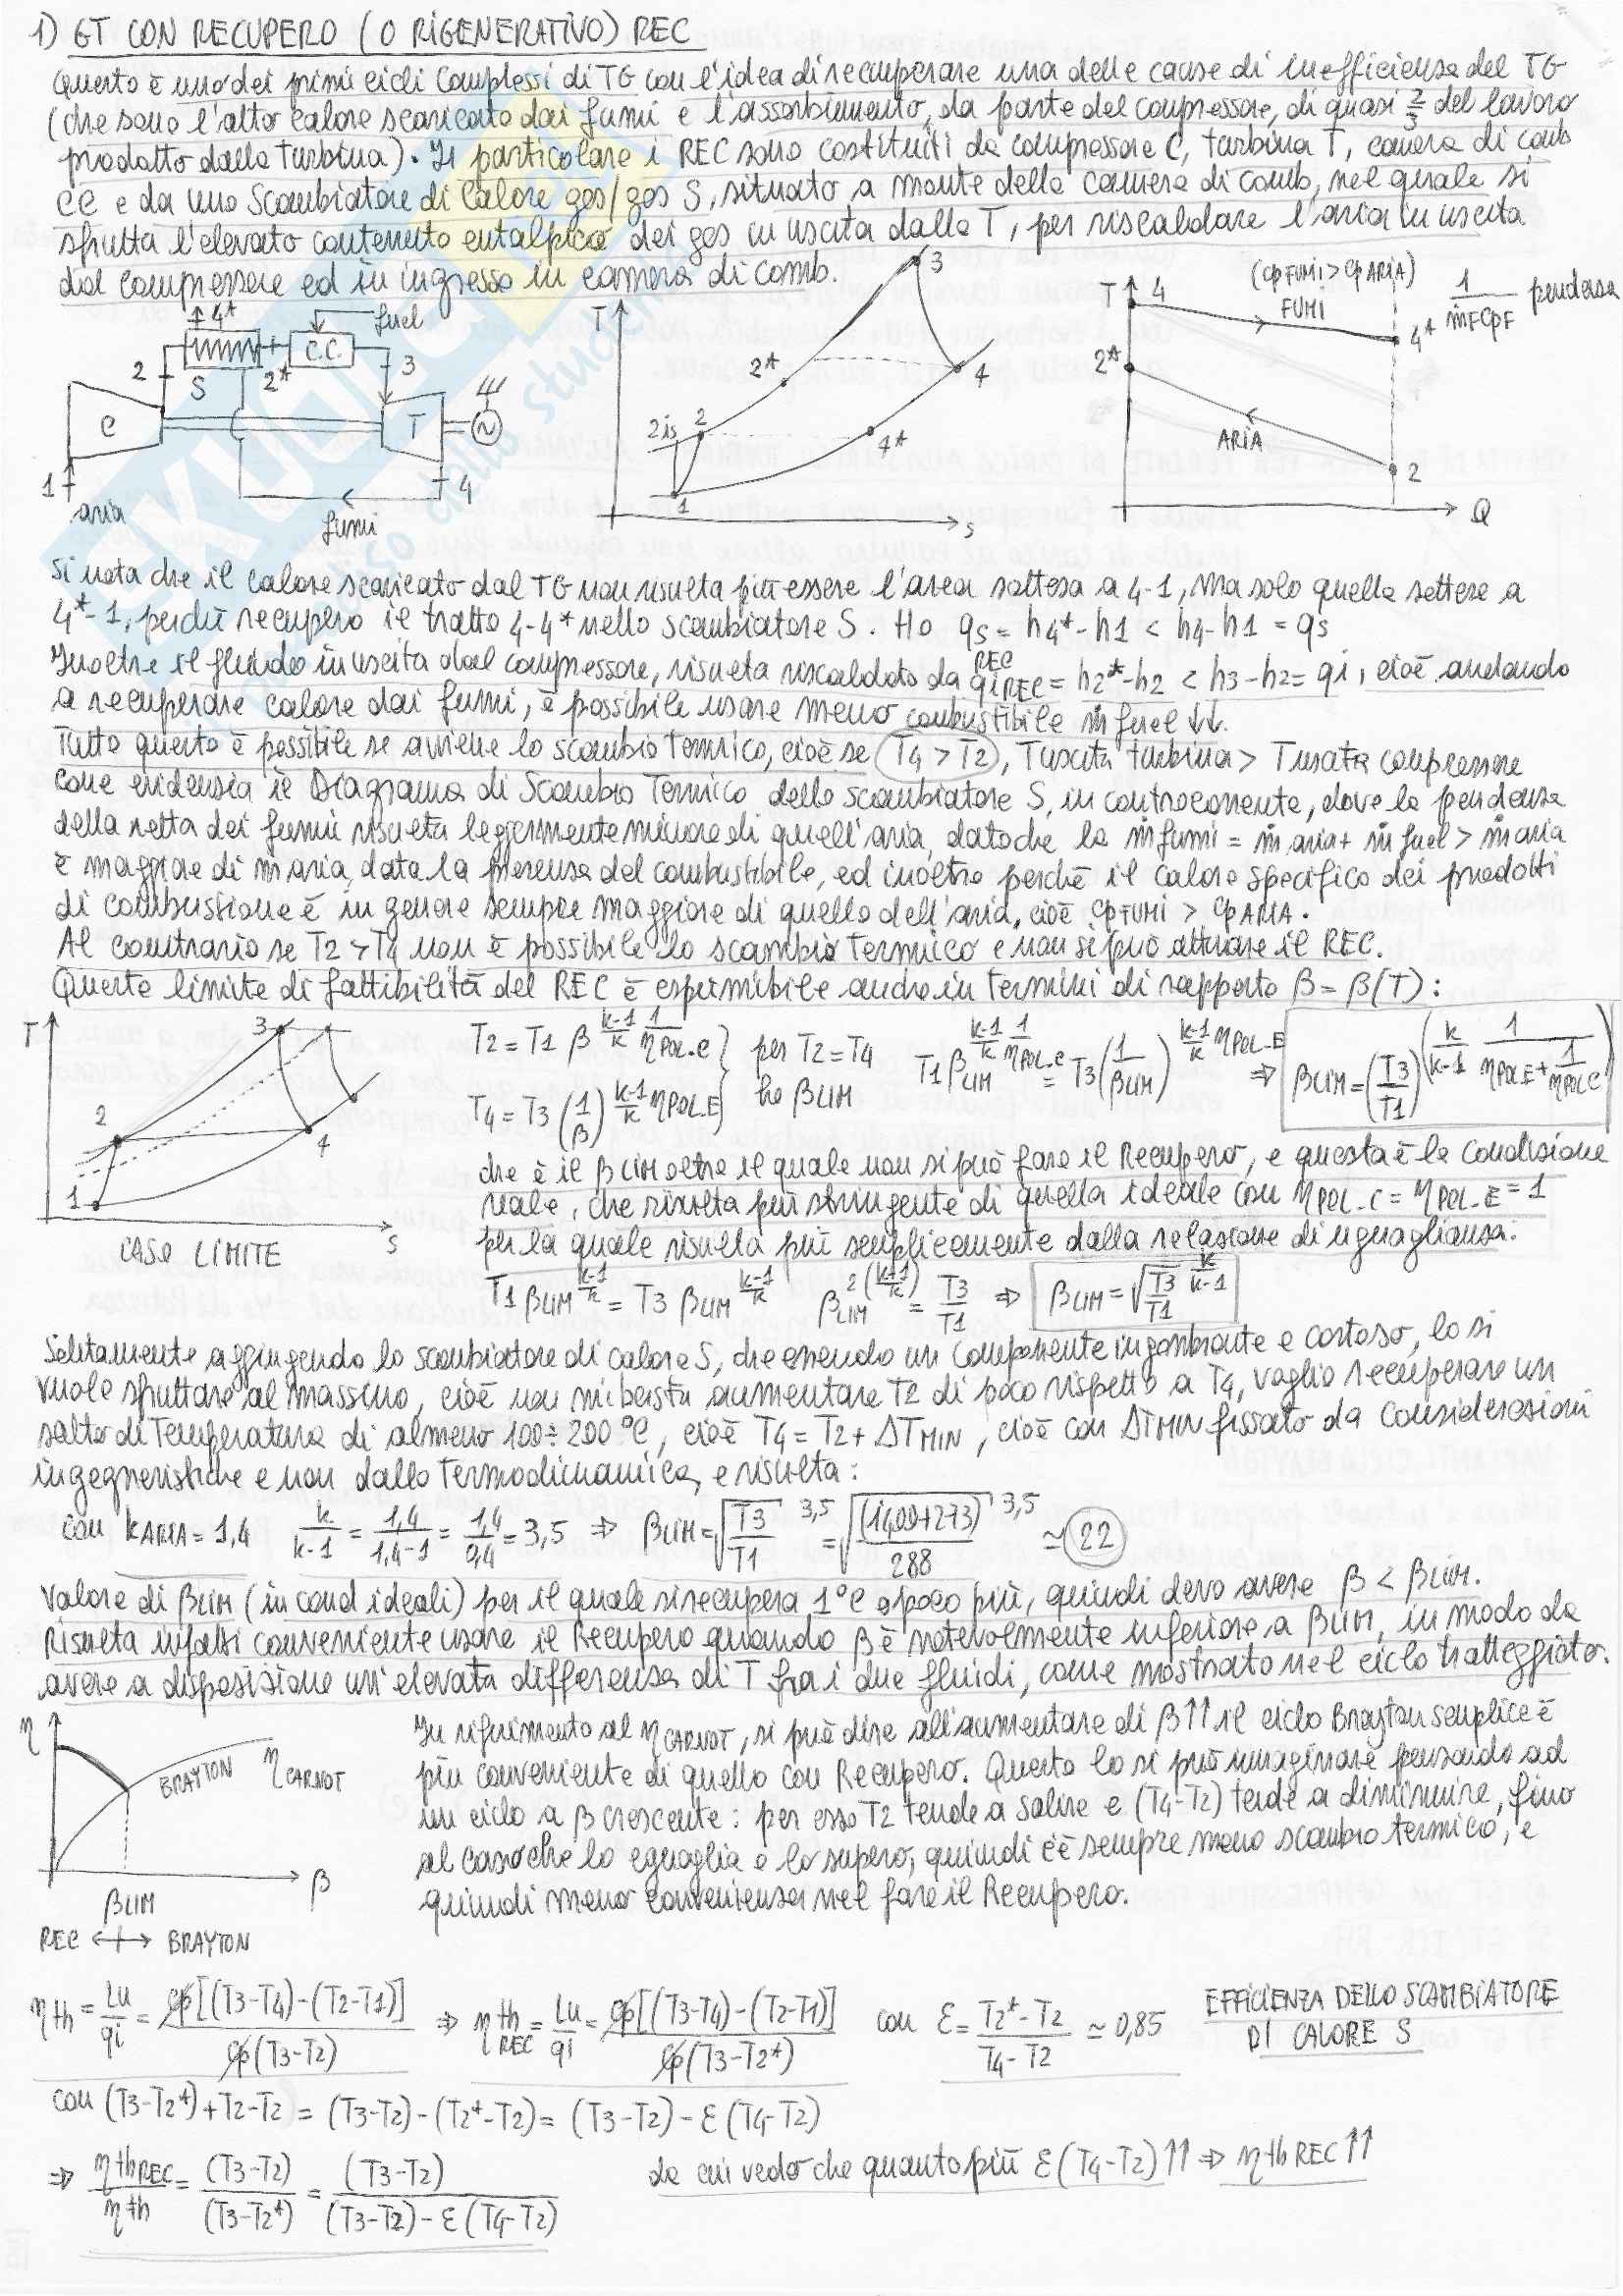 1) GT CON RECUPERO (O RIGENERATIVO) REC
Questo è uno dei primi cicli complessi di TG con l'idea di recuperare una delle cause di inefficienza del TG
(che sono l'alto calore scaricato dai fumi e l'assorbimento, da parte del compressore, di quasi 2/3 del lavoro
prodotto dalla turbina). In particolare i REC sono costituiti da compressore C, turbina T, camera di comb
CC e da uno Scambiatore di Calore gas/gas S, situato a monte della camera di comb, nel quale si
sfrutta l'elevato contenuto entalpico dei gas in uscita dalla T, per riscaldare l'aria in uscita
dal compressore ed in ingresso in camera di comb.
4* fuel
C.C.
2 S 2* 3
C T
1 4
aria fumi
T 3
2* 4
2is 2 4*
1 S
T 4 (CpFUMI > CpARIA)
FUMI 4* 1/ṁFCpF pendenza
2*
ARIA 2
Q
Si nota che il calore scaricato dal TG non risulta più essere l'area sottesa a 4-1, ma solo quella sottesa a
4*-1, perchè recupero il tratto 4-4* nello scambiatore S. Ho qs REC = h4*-h1 < h4-h1 = qs
Inoltre il fluido in uscita dal compressore, risulta riscaldato da qi REC = h2*-h2 < h3-h2 = qi, cioè andando
a recuperare calore dai fumi, è possibile usare meno combustibile ṁ fuel ↓↓.
Tutto questo è possibile se avviene lo scambio termico, cioè se T4 > T2, Tuscita turbina > Tuscita compressore
come evidenzia il Diagramma di Scambio Termico dello scambiatore S, in controcorrente, dove la pendenza
della retta dei fumi risulta leggermente minore di quell'aria, dato che la ṁfumi = ṁ aria + ṁ fuel > ṁ aria
è maggiore di ṁ aria, data la presenza del combustibile, ed inoltre perchè il calore specifico dei prodotti
di combustione è in genere sempre maggiore di quello dell'aria, cioè CpFUMI > CpARIA.
Al contrario se T2 > T4 non è possibile lo scambio termico e non si può attuare il REC.
Questo limite di fattibilità del REC è esprimibile anche in termini di rapporto β = β(T):
T 3
2 4
1 S
CASO LIMITE
T2 = T1 β^(k-1/k 1/ηPOL-C) } per T2 = T4 T1 βLIM^(k-1/k 1/ηPOL-C) = T3 (1/βLIM)^(k-1/k ηPOL-E) ⇒ βLIM = (T3/T1)^(k/k-1 1/(ηPOLE + 1/ηPOLC))
T4 = T3 (1/β)^(k-1/k ηPOL-E) ho βLIM
che è il βLIM oltre il quale non si può fare il Recupero, e questa è la condizione
reale, che risulta più stringente di quella ideale con ηPOL-C = ηPOL-E = 1
per la quale risulta più semplicemente dalla relazione di uguaglianza:
T1 βLIM^(k-1/k) = T3 βLIM^(k-1/k) βLIM^(2(k+1/k)) = T3/T1 ⇒ βLIM = √(T3/T1)^(k/k-1)
Solitamente aggiungendo lo scambiatore di calore S, che essendo un componente ingombrante e costoso, lo si
vuole sfruttare al massimo, cioè non mi basta aumentare T2 di poco rispetto a T4, voglio recuperare un
salto di Temperatura di almeno 100÷200 °C, cioè T4 = T2 + ΔTMIN, cioè con ΔTMIN fissato da considerazioni
ingegneristiche e non dalla termodinamica, e risulta:
con kARIA = 1,4 k/k-1 = 1,4/1,4-1 = 1,4/0,4 = 3,5 ⇒ βLIM = √(T3/T1)^3,5 = √((1400+273)/288)^3,5 ≃ 22
Valore di βLIM (in cond ideali) per il quale si recupera 1°C o poco più, quindi devo avere β < βLIM.
Risulta infatti conveniente usare il Recupero quando β è notevolmente inferiore a βLIM, in modo da
avere a disposizione un'elevata differenza di T fra i due fluidi, come mostrato nel ciclo tratteggiato.
η BRAYTON ηCARNOT
β
βLIM
REC ↔ BRAYTON
In riferimento al ηCARNOT, si può dire all'aumentare di β↑↑ il ciclo Brayton semplice è
più conveniente di quello con Recupero. Questo lo si può immaginare pensando ad
un ciclo a β crescente: per esso T2 tende a salire e (T4-T2) tende a diminuire, fino
al caso che lo eguaglia o lo supera, quindi c'è sempre meno scambio termico, e
quindi meno convenienza nel fare il Recupero.
ηth = Lu/qi = cp[(T3-T4)-(T2-T1)]/cp(T3-T2) ⇒ ηth REC = Lu/qi = cp[(T3-T4)-(T2-T1)]/cp(T3-T2*) con ε = T2*-T2/T4-T2 ≃ 0,85 EFFICIENZA DELLO SCAMBIATORE
DI CALORE S
con (T3-T2*)+T2-T2 = (T3-T2)-(T2*-T2) = (T3-T2)-ε(T4-T2)
⇒ ηthREC/ηth = (T3-T2)/(T3-T2*) = (T3-T2)/(T3-T2)-ε(T4-T2) da cui vedo che quanto più ε(T4-T2)↑↑ ⇒ ηth REC↑↑